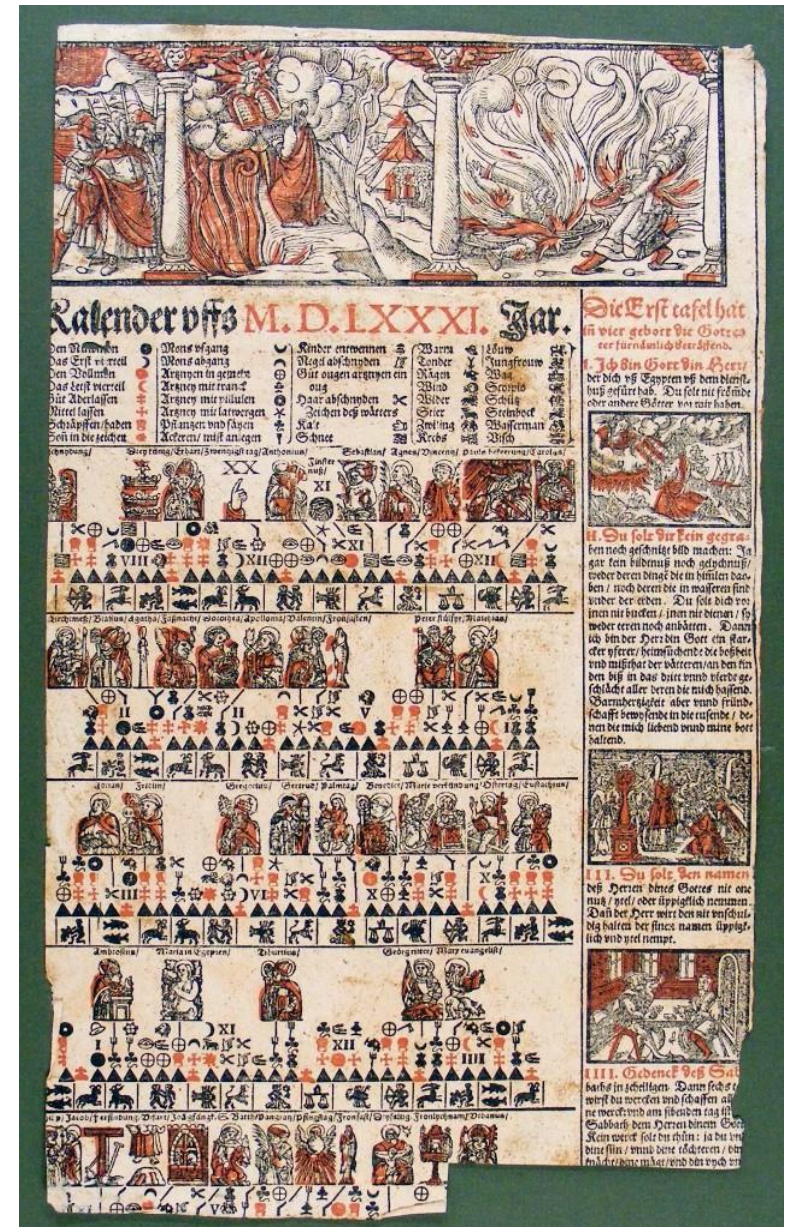 Kalender vffs M. D. LXXXI. Jar.
Den Vollmon
Das Letst vierteil
Güt Aderlassen
Mittel lassen
Schräpffen/baden
Son in die zeichen
Mons vfgang
Mons abgang
Artznyen in gemein
Artzney mit tranck
Artzney mit pillulen
Artzney mit latwergen
Pflantzen vnd säyen
Ackeren/ mist anlegen
Kinder entwennen
Negel abschnyden
Güt ougen artznyen ein
oug
Haar abschnyden
Zeichen deß wätters
Kalt
Schnee
Warm
Tonder
Rägen
Wind
Wilder
Stier
Zwiling
Krebs
Löuw
Jungfrouw
Wag
Scorpio
Schütz
Steinbock
Wasserman
Visch
Dry künig/ Erhart/ Zwentzigst tag/ Anthonius/ Sebastian/ Agnes/ Vincentz/ Pauls bekeerung/ Carolus/
XX
Finster
nuß/
XI
XI
VIII XII XII
Liechtmeß/ Blasius/ Agatha/ Faßnacht/ Dorothea/ Apollonia/ Valentin/ Fronfasten/ Peter stůlfyr/ Matthias/
II II V
I
Fridlin/ Gregorius/ Gertrud/ Palmtag/ Benedict/ Marie verkündung/ Ostertag/ Eustachius/
III VI X X
Ambrosius/ Maria in Egypten/ Tiburtius/ Georg ritter/ Marx euangelist/
XI
I XII
IIII
Jacob/ Pfingstag/ Fronfast/ Fronlychnam/ Vrbanus/
Die Erst tafel hat
in vier gebott die Gottes
eer fürnämlich beträffend.
I. Ich Bin Gott din Herr/
der dich vß Egypten vß dem dienst-
huß gefürt hab. Du solt nit frömde
oder andere Götter vor mir haben.
II. Du solt dir kein gegra-
ben noch geschnitzt bild machen: Ja
gar kein bildtnuß noch gelychnuß/
weder deren dingē die in himlen dao-
ben/ noch deren die in wasseren sind
vnder der erden. Du solt dich vor
jnen nit bucken/ jnen nit dienen/ sy
weder eeren noch anbätten. Dann
ich bin der Herr din Gott ein star-
cker yferer/ heimsüchende die boßheit
vnd mißthat der vätteren/ an den kin
den biß in das dritt vnnd vierde ge-
schlächt aller deren die mich hassend.
Barmhertzigkeit aber vnnd fründ-
schafft bewysende in die tusende/ de-
nen die mich liebend vnnd mine bott
haltend.
III. Du solt den namen
deß Herren dines Gottes nit one
nutz/ ytel/ oder üppigklich nemmen.
Dañ der Herr wirt den nit vnschul-
dig halten der sinen namen üppigk-
lich vnd ytel nempt.
IIII. Gedenck deß Sab
baths zu heiligen. Dann sechs
wirst du wercken vnd schaffen all
ne werck: vnd am sibenden tag ist
Sabbath dem Herren dinem Gott
Kein werck solt du thůn: ja du vnd
dine sün/ vnnd dine töchteren/ din
knächt/ dine mägt/ vnd din vych vn